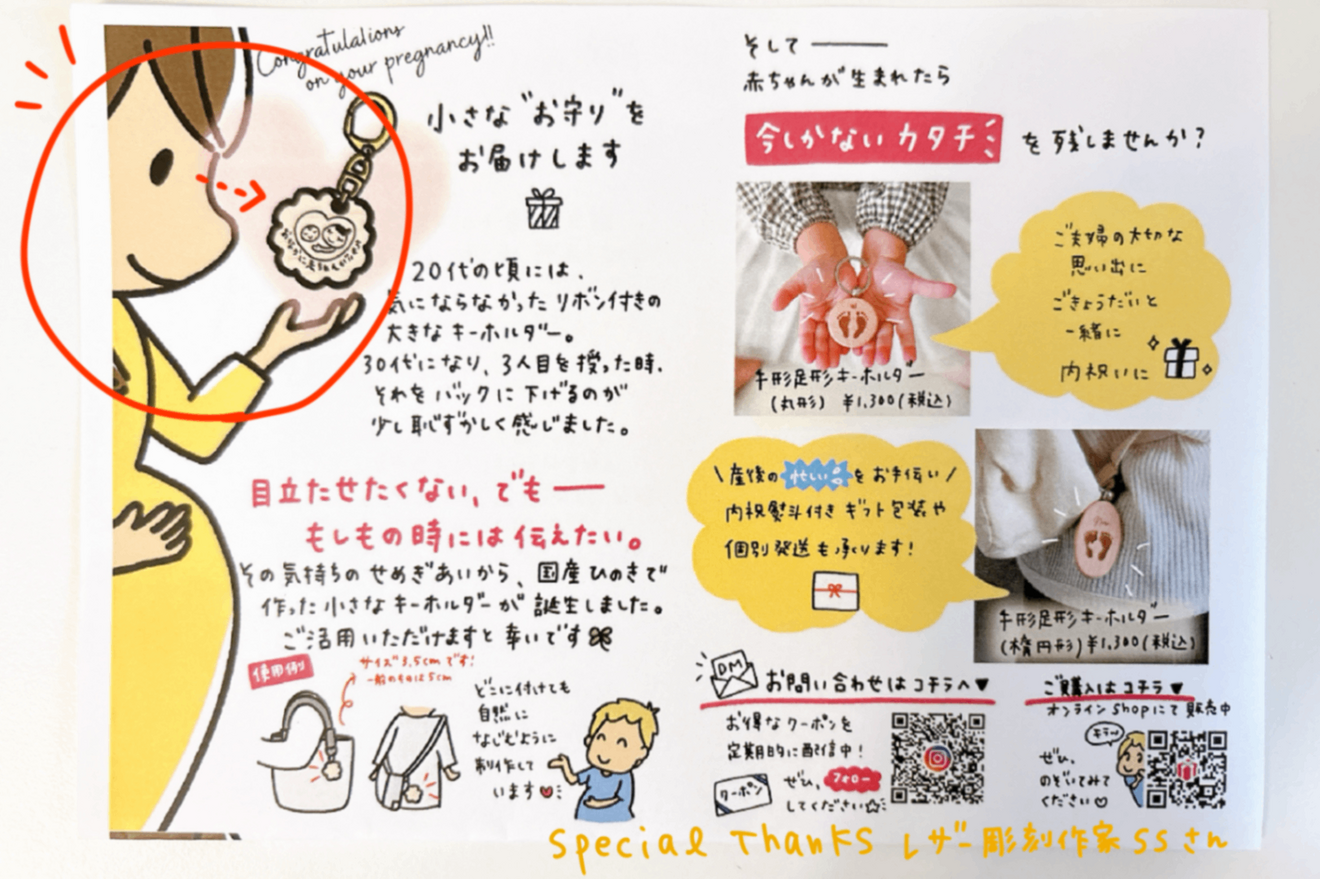 Congratulations
on your pregnancy!!
小さな"お守り"を
お届けします
おなかに赤ちゃんがいます
20代の頃には、
気にならなかったリボン付きの
大きなキーホルダー。
30代になり、3人目を授った時、
それをバックに下げるのが
少し恥ずかしく感じました。
目立たせたくない、でも──
もしもの時には伝えたい。
その気持ちのせめぎあいから、国産ひのきで
作った小さなキーホルダーが誕生しました。
ご活用いただけますと幸いです
使用例
サイズ3.5cmです!
一般のものは5cm
どこに付けても
自然に
なじむように
制作して
います
そして──
赤ちゃんが生まれたら
今しかないカタチ を残しませんか?
手形足形キーホルダー
(丸形) ¥1,300(税込)
ご夫婦の大切な
思い出に
ごきょうだいと
一緒に
内祝いに
\産後の忙しいをお手伝い/
内祝熨斗付きギフト包装や
個別発送も承ります!
手形足形キーホルダー
(楕円形)¥1,300(税込)
DM
お問い合わせはコチラへ♥
お得なクーポンを
定期的に配信中!
クーポン
ぜひ、フォロー
してください☆
ご購入はコチラ♥
オンラインshopにて販売中
チラッ
ぜひ、
のぞいてみて
ください♡
Special Thanks レザー彫刻作家 SSさん